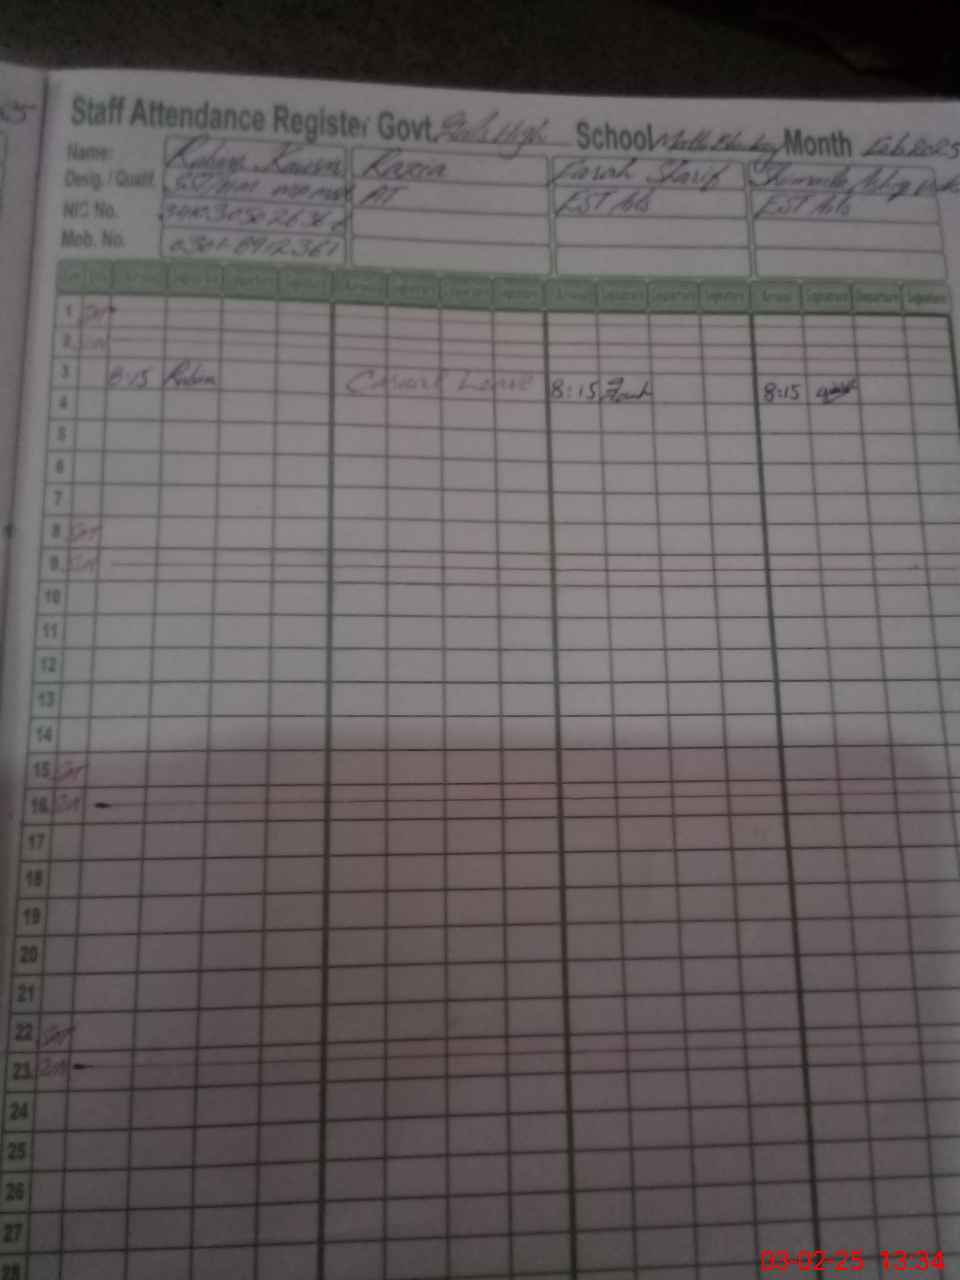 Staff Attendance Register Govt. Girls High School Month Feb 2025
Name: Rubina Kausar Razia Farah Sharif
Desig. / Qualif. AT EST Arts EST Arts
NIC No.
Mob. No. 0301-8912361
Arrival Signature Departure Signature Arrival Signature Departure Signature Arrival Signature Departure Signature Arrival Signature Departure Signature
1 Sat
2 Sun
3 8:15 Rubina Casual Leave 8:15 Farah 8:15
4
5
6
7
8 Sat
9 Sun
10
11
12
13
14
15 Sat
16 Sun
17
18
19
20
21
22 Sat
23 Sun
24
25
26
27
28
03-02-25 13:34